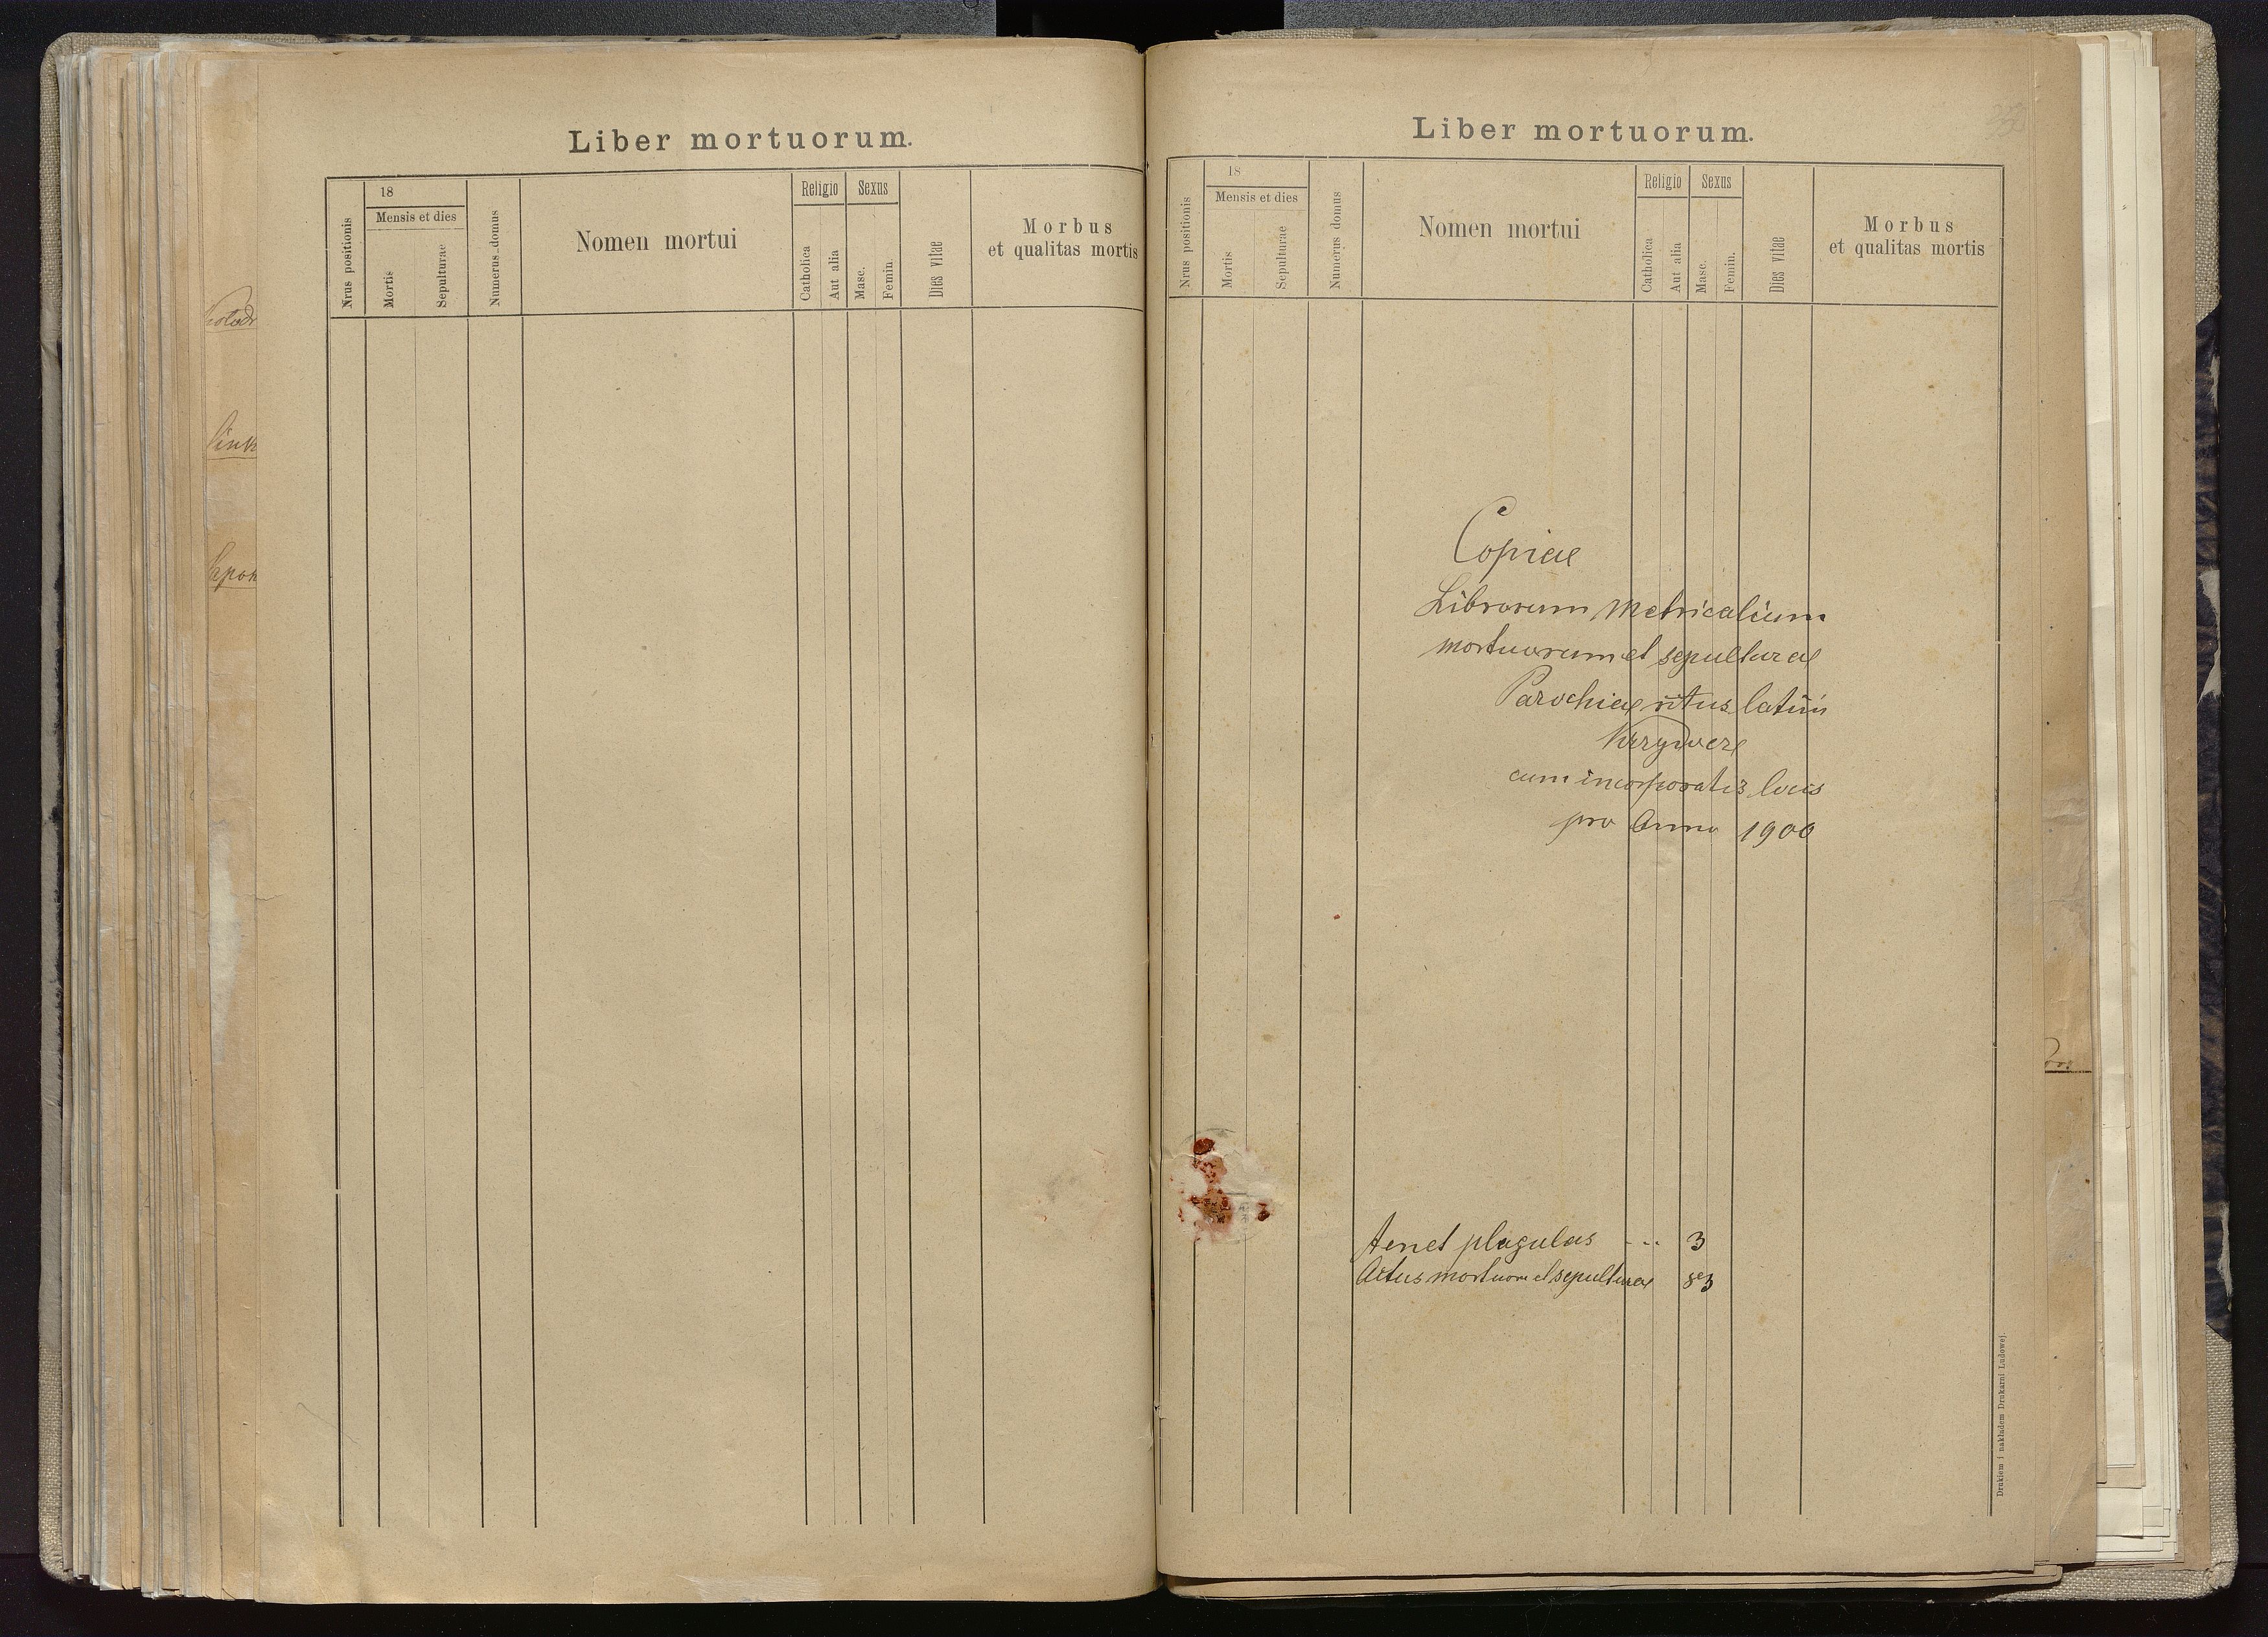 Liber mortuorum.
Nrus positionis
18
Mensis et dies
Mortis
Sepulturae
Numerus domus
Nomen mortui
Religio
Catholica
Aut alia
Sexus
Masc.
Femin.
Dies vitae
Morbus
et qualitas mortis
Liber mortuorum.
Nrus positionis
18
Mensis et dies
Mortis
Sepulturae
Numerus domus
Nomen mortui
Religio
Catholica
Aut alia
Sexus
Masc.
Femin.
Dies vitae
Morbus
et qualitas mortis
Copiae
Librorum Metricalium
mortuorum et sepulturae
Parochiae ritus latini
cum incorporatis locis
pro Anno 1900
tenet plagulas - - - 3
Actus mortuor et sepulturae 83
Drukiem i nakładem Drukarni Ludowej.